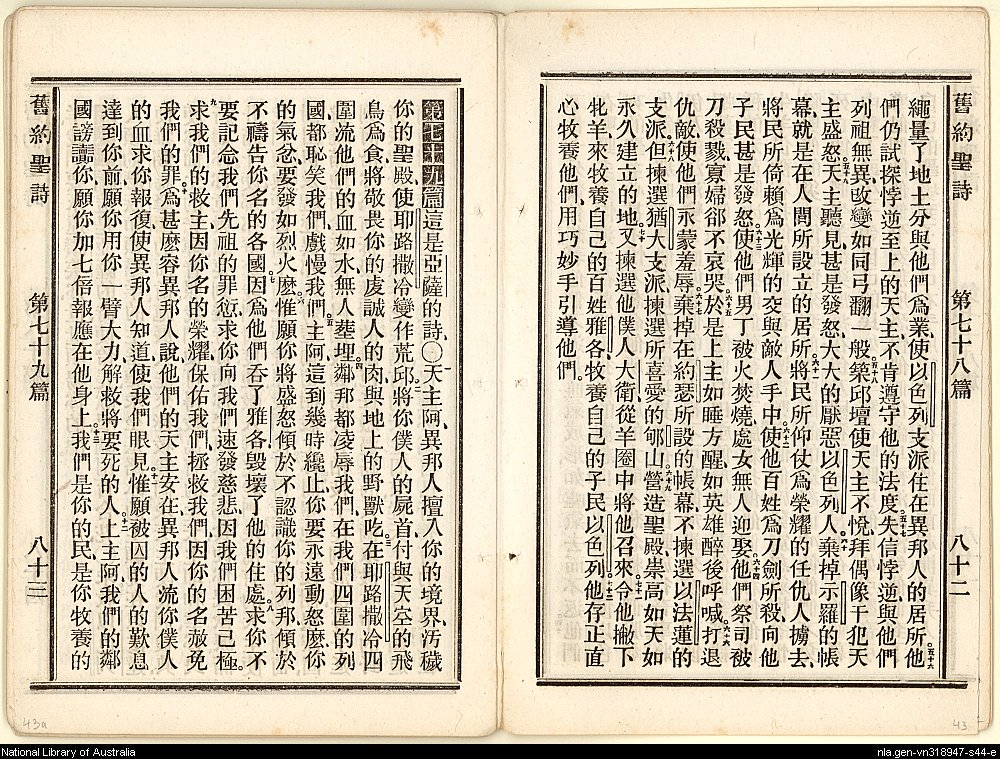 舊約聖詩 第七十八篇 八十二
繩量了地土分與他們爲業使以色列支派住在異邦人的居所五十六他
們仍試探悖逆至上的天主不肯遵守他的法度五十七失信悖逆與他們
列祖無異改變如同弓翻一般五十八築邱壇使天主不悅拜偶像干犯天
主盛怒五十九天主聽見甚是發怒大大的厭惡以色列人六十棄掉示羅的帳
幕就是在人間所設立的居所六十一將民所仰仗爲榮耀的任仇人擄去
將民所倚賴爲光輝的交與敵人手中六十二使他百姓爲刀劍所殺向他
子民甚是發怒六十三使他們男丁被火焚燒處女無人迎娶六十四他們祭司被
刀殺戮寡婦卻不哀哭六十五於是上主如睡方醒如英雄醉後呼喊六十六打退
仇敵使他們永蒙羞辱六十七棄掉在約瑟所設的帳幕不揀選以法蓮的
支派六十八但揀選猶大支派揀選所喜愛的郇山六十九營造聖殿崇高如天如
永久建立的地七十又揀選他僕人大衛從羊圈中將他召來七十一令他撇下
牝羊來牧養自己的百姓雅各牧養自己的子民以色列七十二他存正直
心牧養他們用巧妙手引導他們
舊約聖詩 第七十九篇 八十三
第七十九篇這是亞薩的詩〇一天主阿異邦人擅入你的境界汚穢
你的聖殿使耶路撒冷變作荒邱二將你僕人的屍首付與天空的飛
鳥爲食將敬畏你的虔誠人的肉與地上的野獸吃三在耶路撒冷四
圍流他們的血如水無人塟埋四鄰邦都凌辱我們在我們四圍的列
國都恥笑我們戲慢我們五主阿這到幾時纔止你要永遠動怒麽你
的氣忿要發如烈火麽六惟願你將盛怒傾於不認識你的列邦傾於
不禱告你名的各國七因爲他們吞了雅各毀壞了他的住處八求你不
要記念我們先祖的罪愆求你向我們速發慈悲因我們困苦已極
九求我們的救主因你名的榮耀保佑我們拯救我們因你的名赦免
我們的罪十爲甚麽容異邦人說他們的天主安在異邦人流你僕人
的血求你報復使異邦人知道使我們眼見十一惟願被囚的人的歎息
達到你前願你用你一臂大力解救將要死的人十二上主阿我們的鄰
國謗讟你願你加七倍報應在他身上十三我們是你的民是你牧養的
43a
43
National Library of Australia
nla.gen-vn318947-s44-e